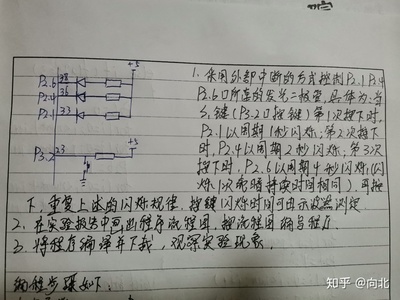 +5
P2.6 38
P2.4 36
P2.1 33
+5
P3.2 23
1. 采用外部中断的方式控制P2.1 P2.4
P2.6口所连的发光二极管,具体为:当
键(P3.2口按键)第1次按下时,
P2.1以周期1秒闪烁;第2次按下
时,P2.4以周期2秒闪烁;第3次
按下时,P2.6以周期4秒闪烁(闪
烁1次亮暗持续时间相同)。再按
下,重复上述的闪烁规律。按键闪烁时间可由示波器测定
2. 在实验报告中画出程序流程图,按流程图编写程序。
3. 将程序编译并下载,观察实验现象。
编程步骤如下:
知乎 @向北